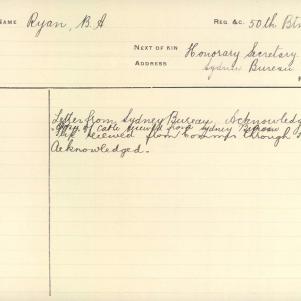 NAME Ryan, B.A REG. &C. 50th Btn
NEXT OF KIN Honorary Secretary
ADDRESS Sydney Bureau
Letter from Sydney Bureau, Acknowledg
Copy of cable received from Sydney Bureau
received from through
Acknowledged.